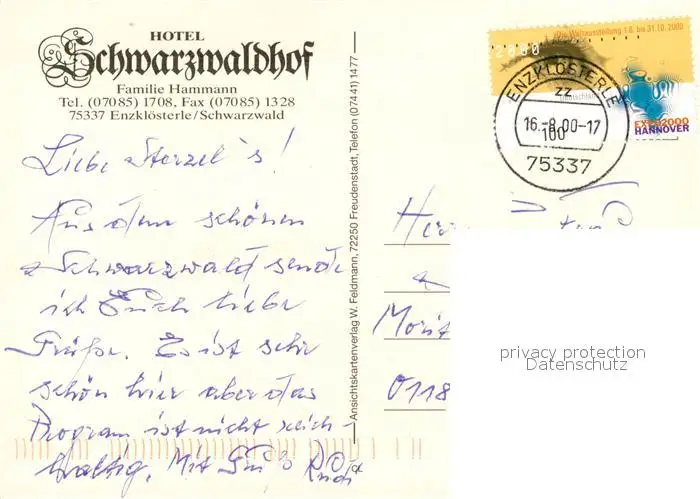 HOTEL
Schwarzwaldhof
Familie Hammann
Tel. (07085) 1708, Fax (07085) 1328
75337 Enzklösterle/Schwarzwald
Liebe Sterzel's!
Aus dem schönen
Schwarzwald sende
ich Euch liebe
Grüße. Es ist sehr
schön hier aber das
Program ist nicht reich-
haltig. Mit Gruß
Ansichtskartenverlag W. Feldmann, 72250 Freudenstadt, Telefon (07441) 1477
Die Weltausstellung 1.6. bis 31.10.2000
2000
Deutschland
100
EXPO2000
HANNOVER
ENZKLÖSTERLE
zz
16.-8.00-17
75337
Herr
Morit
0118
privacy protection
Datenschutz